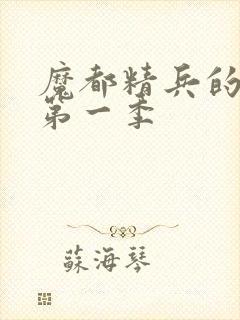 魔都精兵的
第一季
蘇海琴